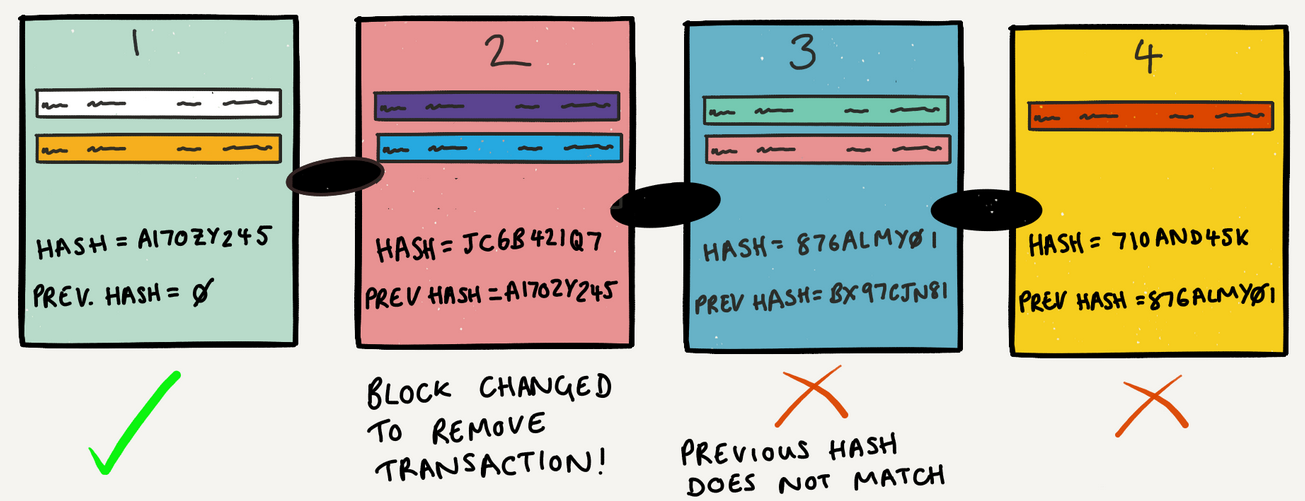 1
HASH = A170ZY245
PREV. HASH = Ø
2
HASH = JC6B421Q7
PREV HASH = A170ZY245
BLOCK CHANGED
TO REMOVE
TRANSACTION!
3
HASH = 876ALMYØ1
PREV HASH = BX97CJN81
PREVIOUS HASH
DOES NOT MATCH
4
HASH = 710AND45K
PREV HASH = 876ALMYØ1